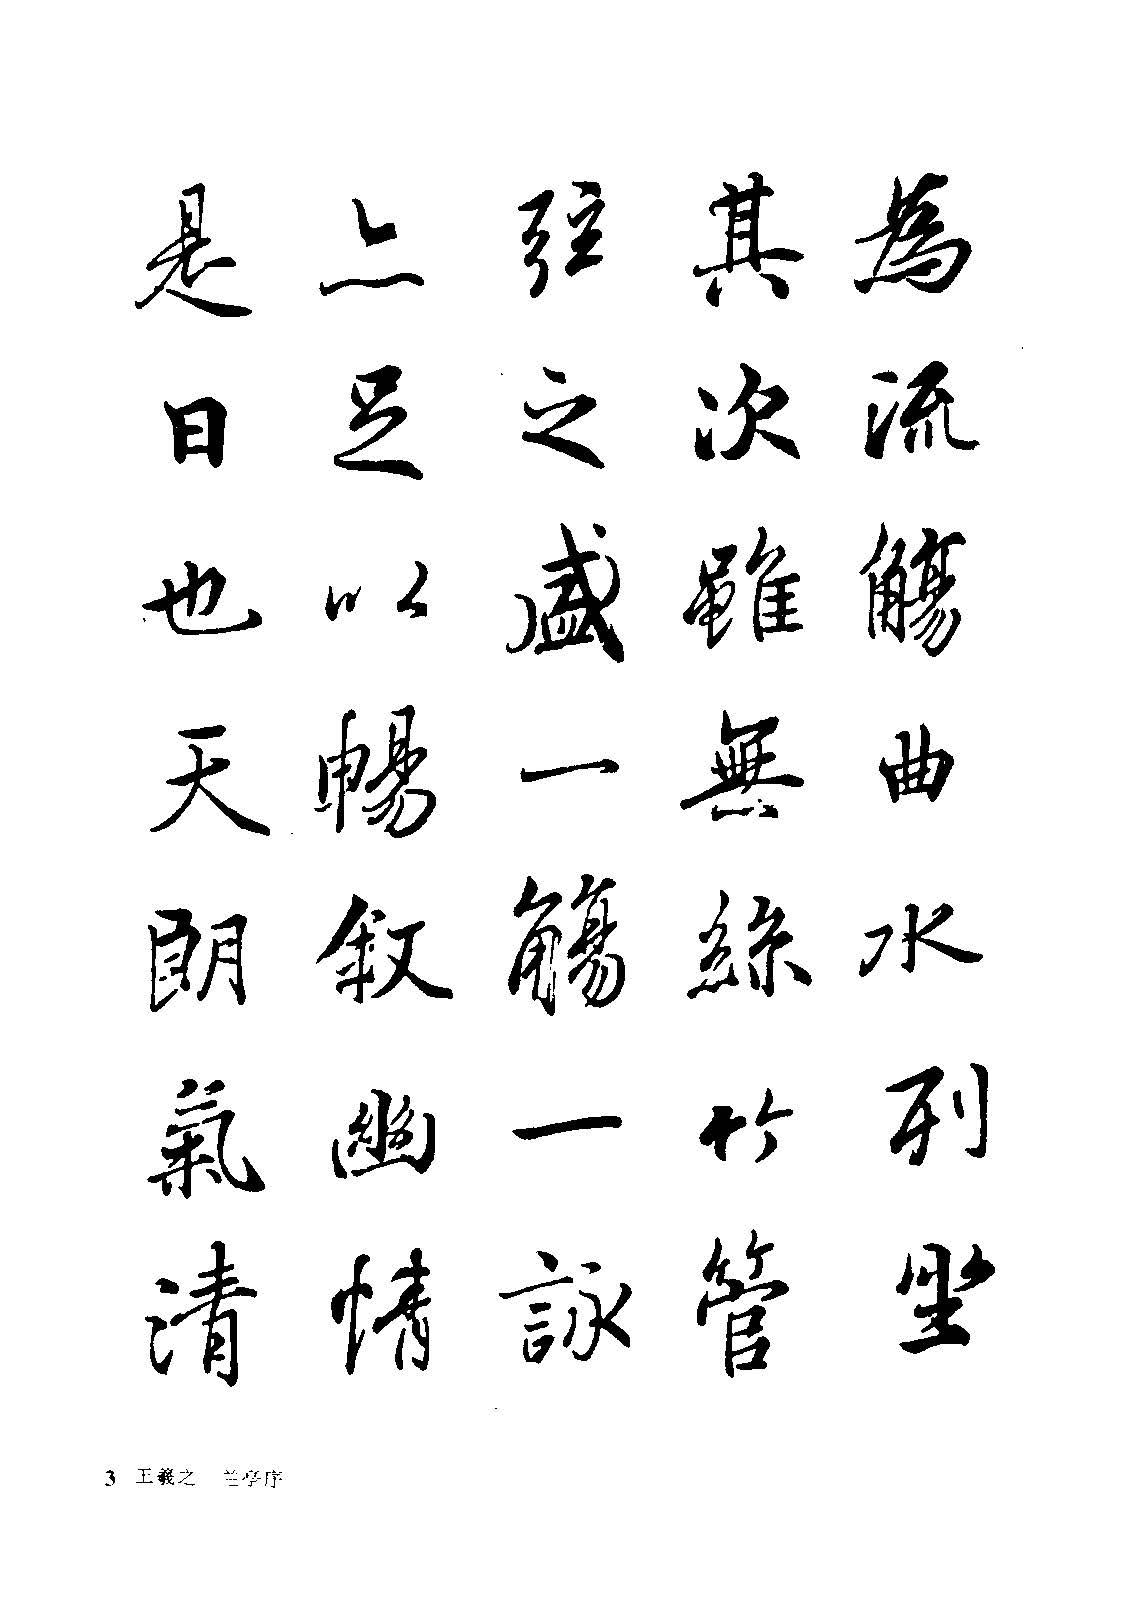 為流觴曲水列坐
其次雖無絲竹管
弦之盛一觴一詠
亦足以暢敘幽情
是日也天朗氣清
3 王羲之 兰亭序